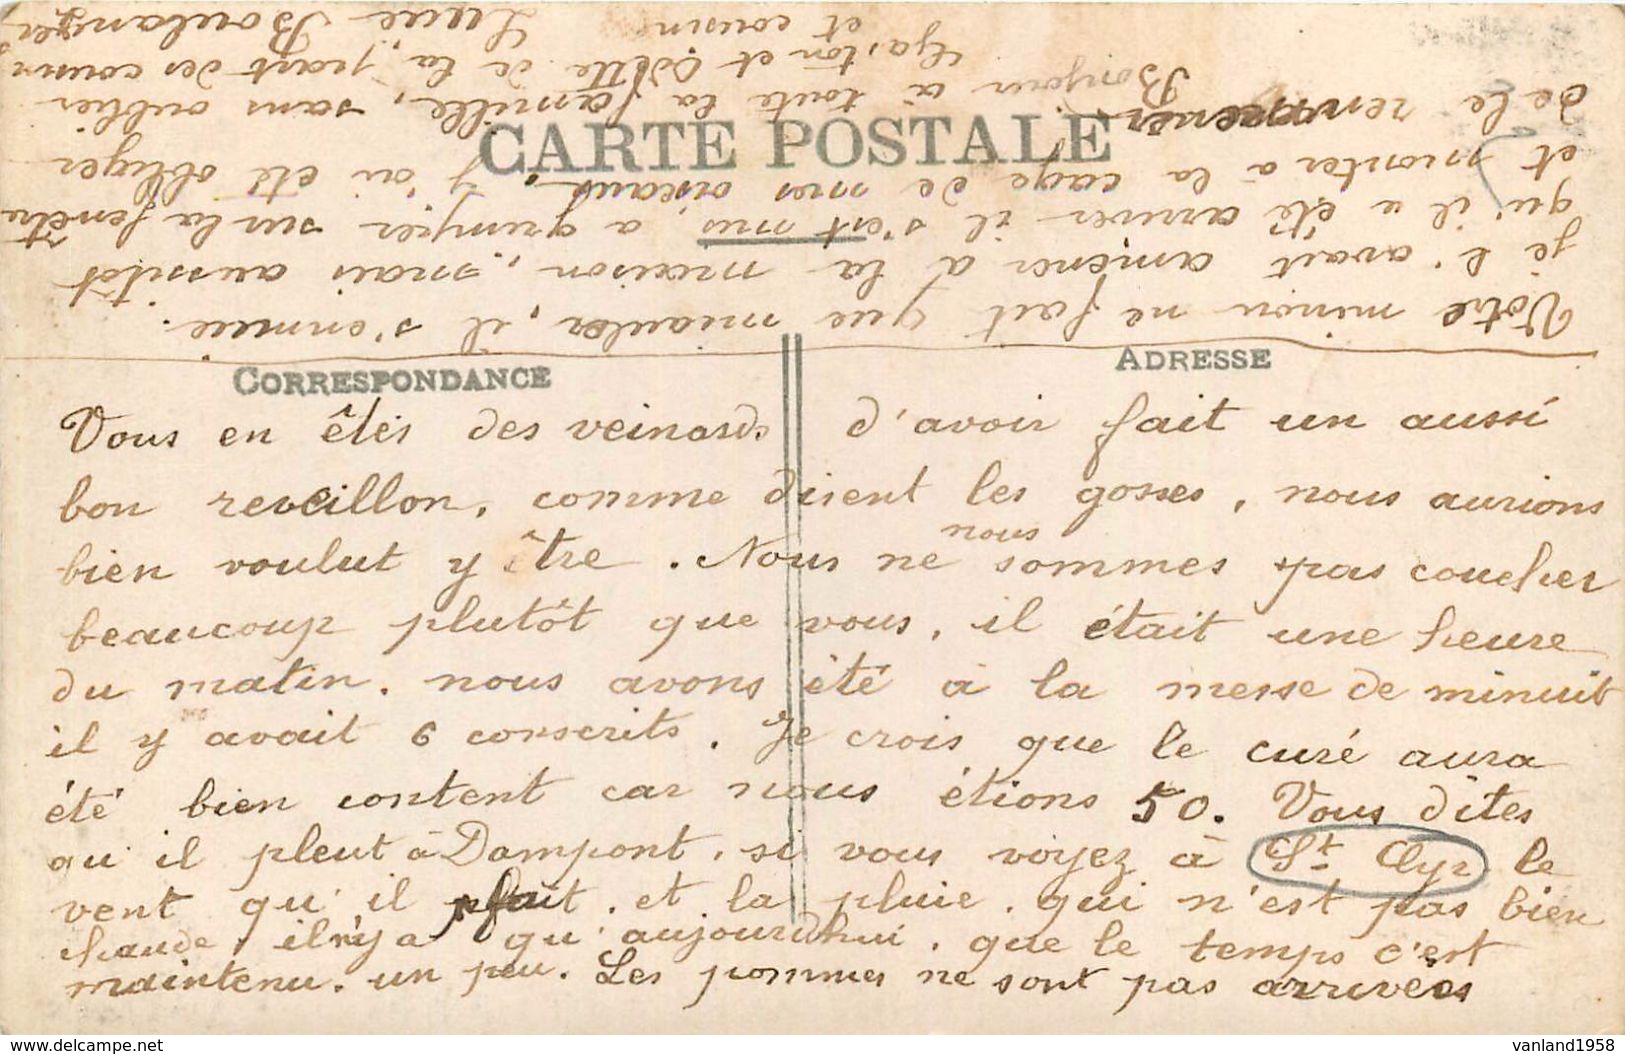 CARTE POSTALE
CORRESPONDANCE
ADRESSE
Vous en êtes des veinards d'avoir fait un aussi
bon reveillon, comme disent les gosses, nous aurions
bien voulut y être. Nous ne nous sommes pas coucher
beaucoup plutôt que vous, il était une heure
du matin. nous avons été à la messe de minuit
il y avait 6 conscrits. Je crois que le curé aura
été bien content car nous étions 50. Vous dîtes
qu'il pleut à Dampont, si vous voyez à St Cyr le
vent qu'il fait. et la pluie. qui n'est pas bien
chaude, il n'y a qu'aujourd'hui. que le temps c'est
maintenu. un peu. Les pommes ne sont pas arrivées
Votre minou ne fait que miauler, il s'ennuie.
je l'avait amener à la maison, mais aussitôt
qu'il a été arriver il s'est mis a grimper sur la fenêtre
et monter à la cage de mes oiseaux, j'ai été obliger
de le renmener
Bonjour à toute la famille, sans oublier
Gaston et Odette de la part des cousins
et cousine
Lucie Boulanger
vanland1958